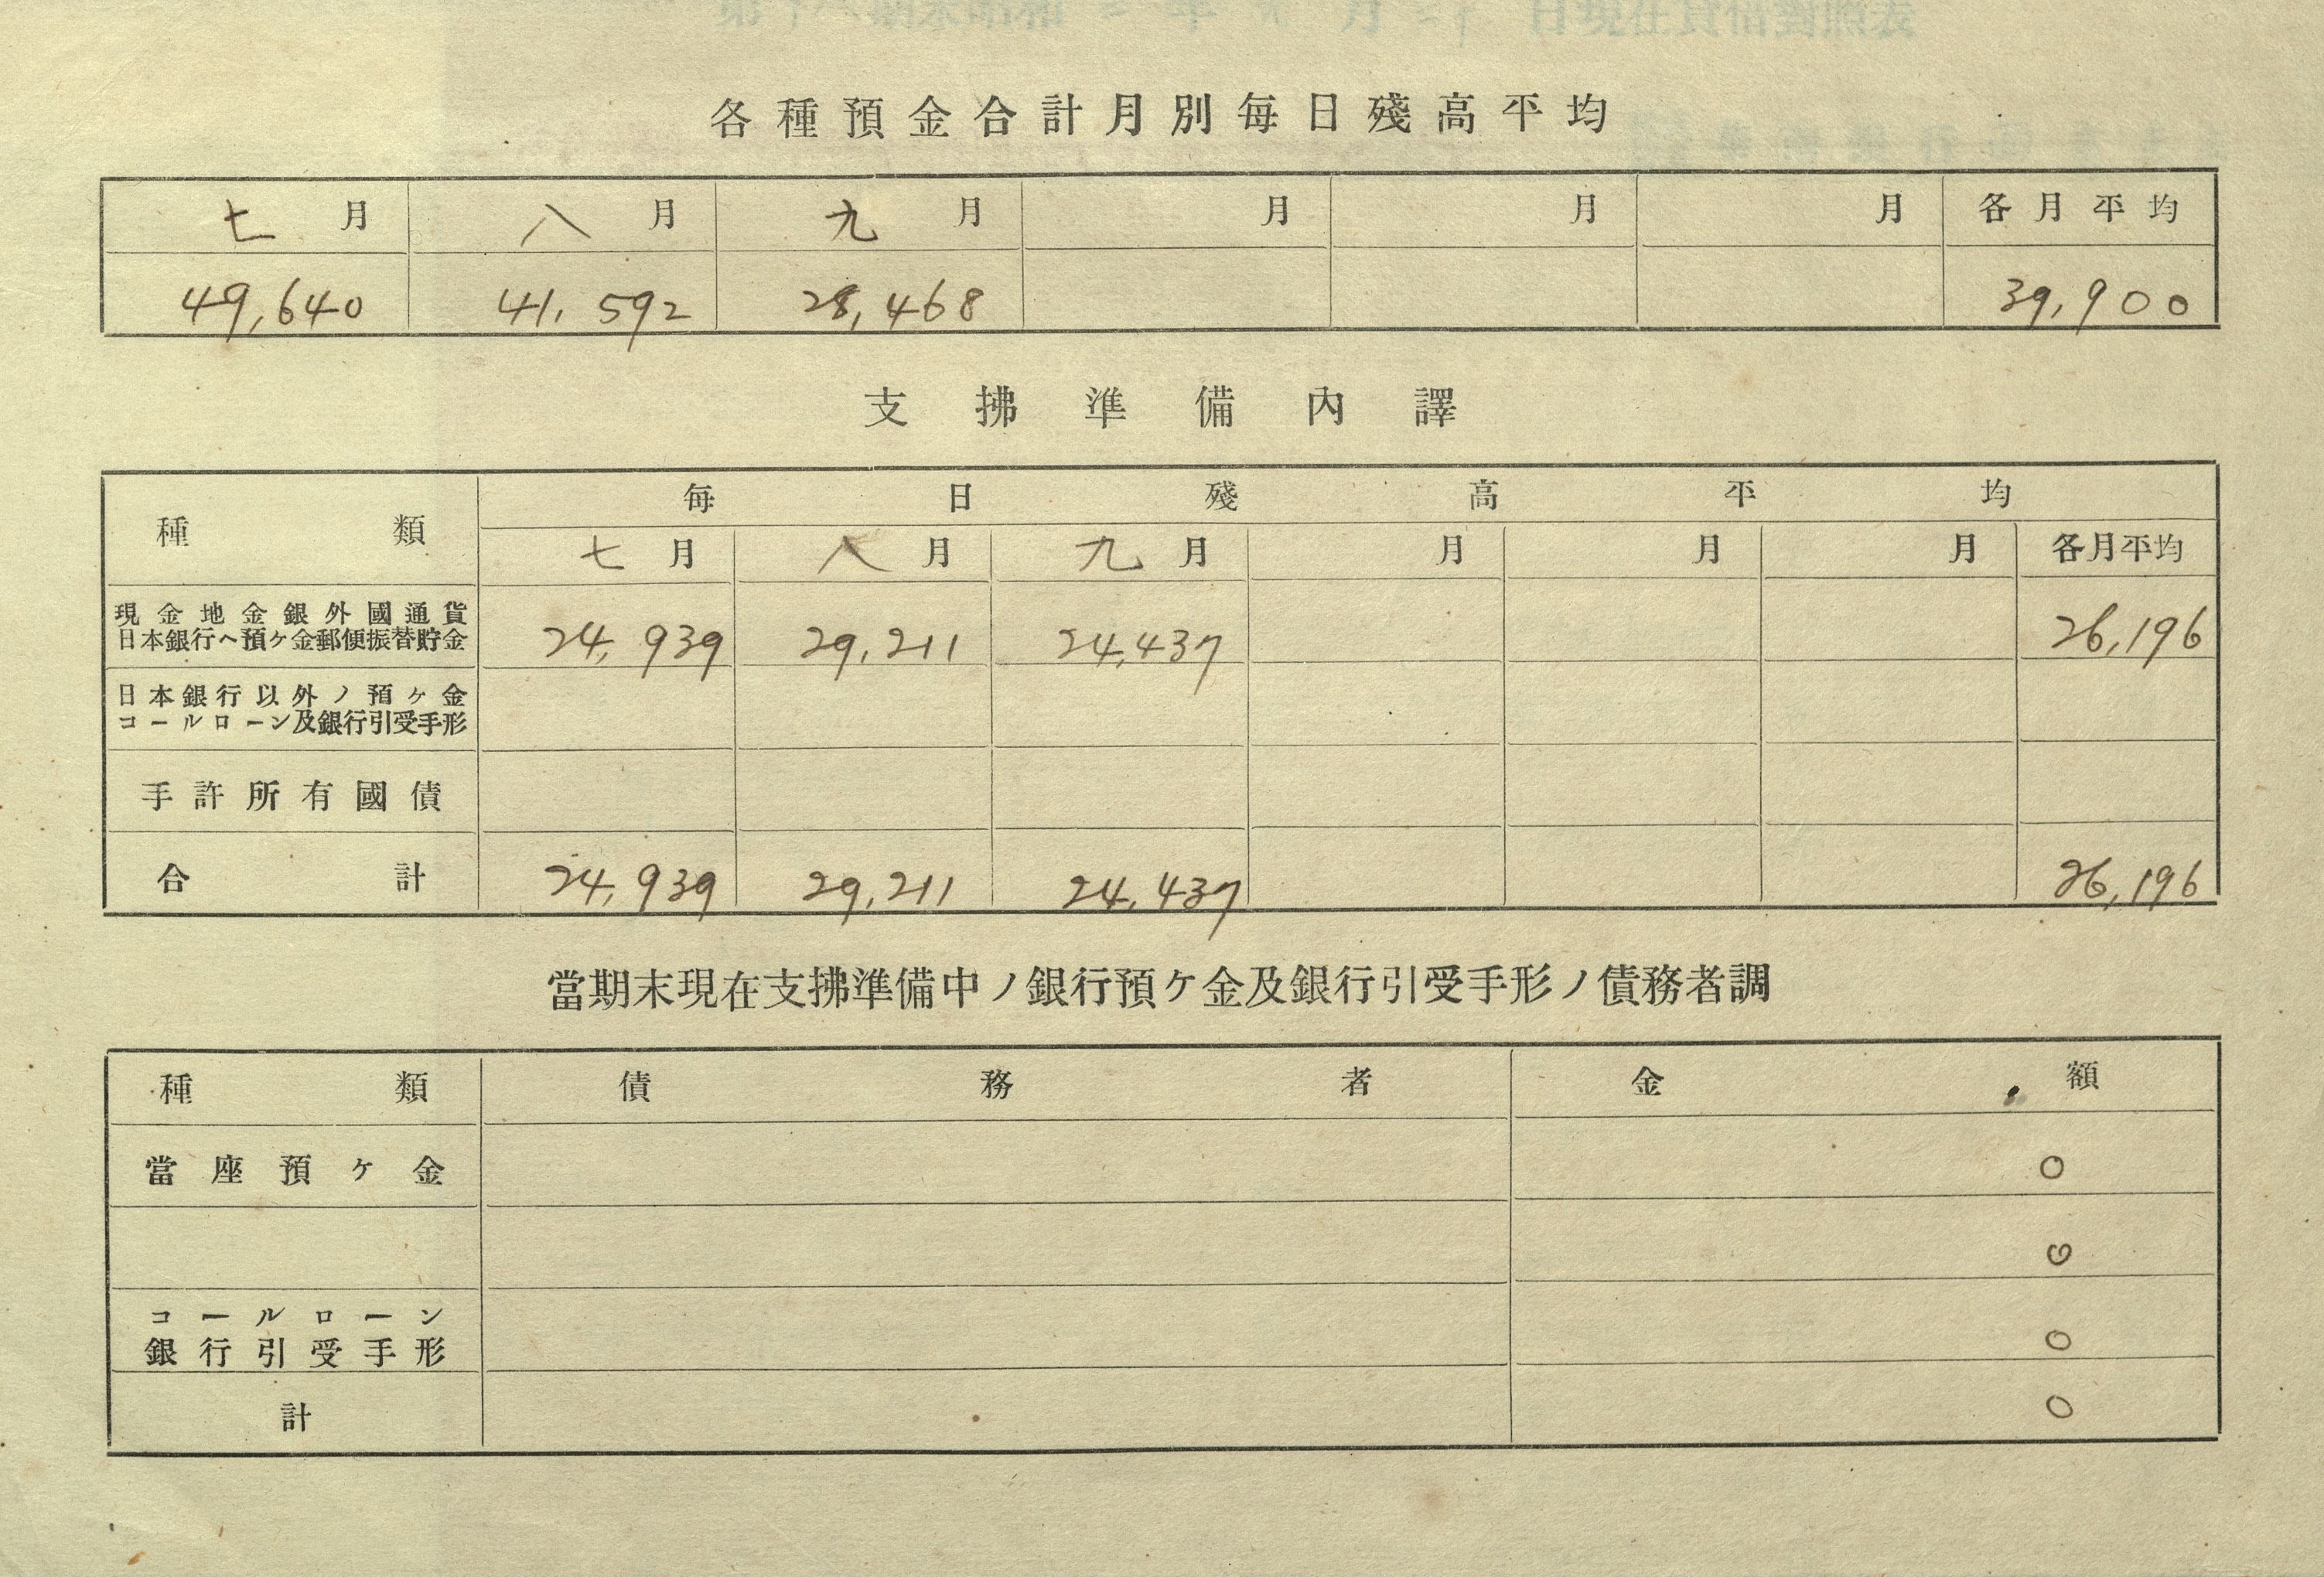 各種預金合計月別每日殘高平均
七月 八月 九月 月 月 月 各月平均
49,640 41,592 28,468 39,900
支拂準備內譯
種類 每日殘高平均
七月 八月 九月 月 月 月 各月平均
現金地金銀外國通貨
日本銀行ヘ預ケ金郵便振替貯金 24,939 29,211 24,437 26,196
日本銀行以外ノ預ケ金
コールローン及銀行引受手形
手許所有國債
合計 24,939 29,211 24,437 26,196
當期末現在支拂準備中ノ銀行預ケ金及銀行引受手形ノ債務者調
種類 債務者 金額
當座預ケ金 0
0
コールローン
銀行引受手形 0
計 0